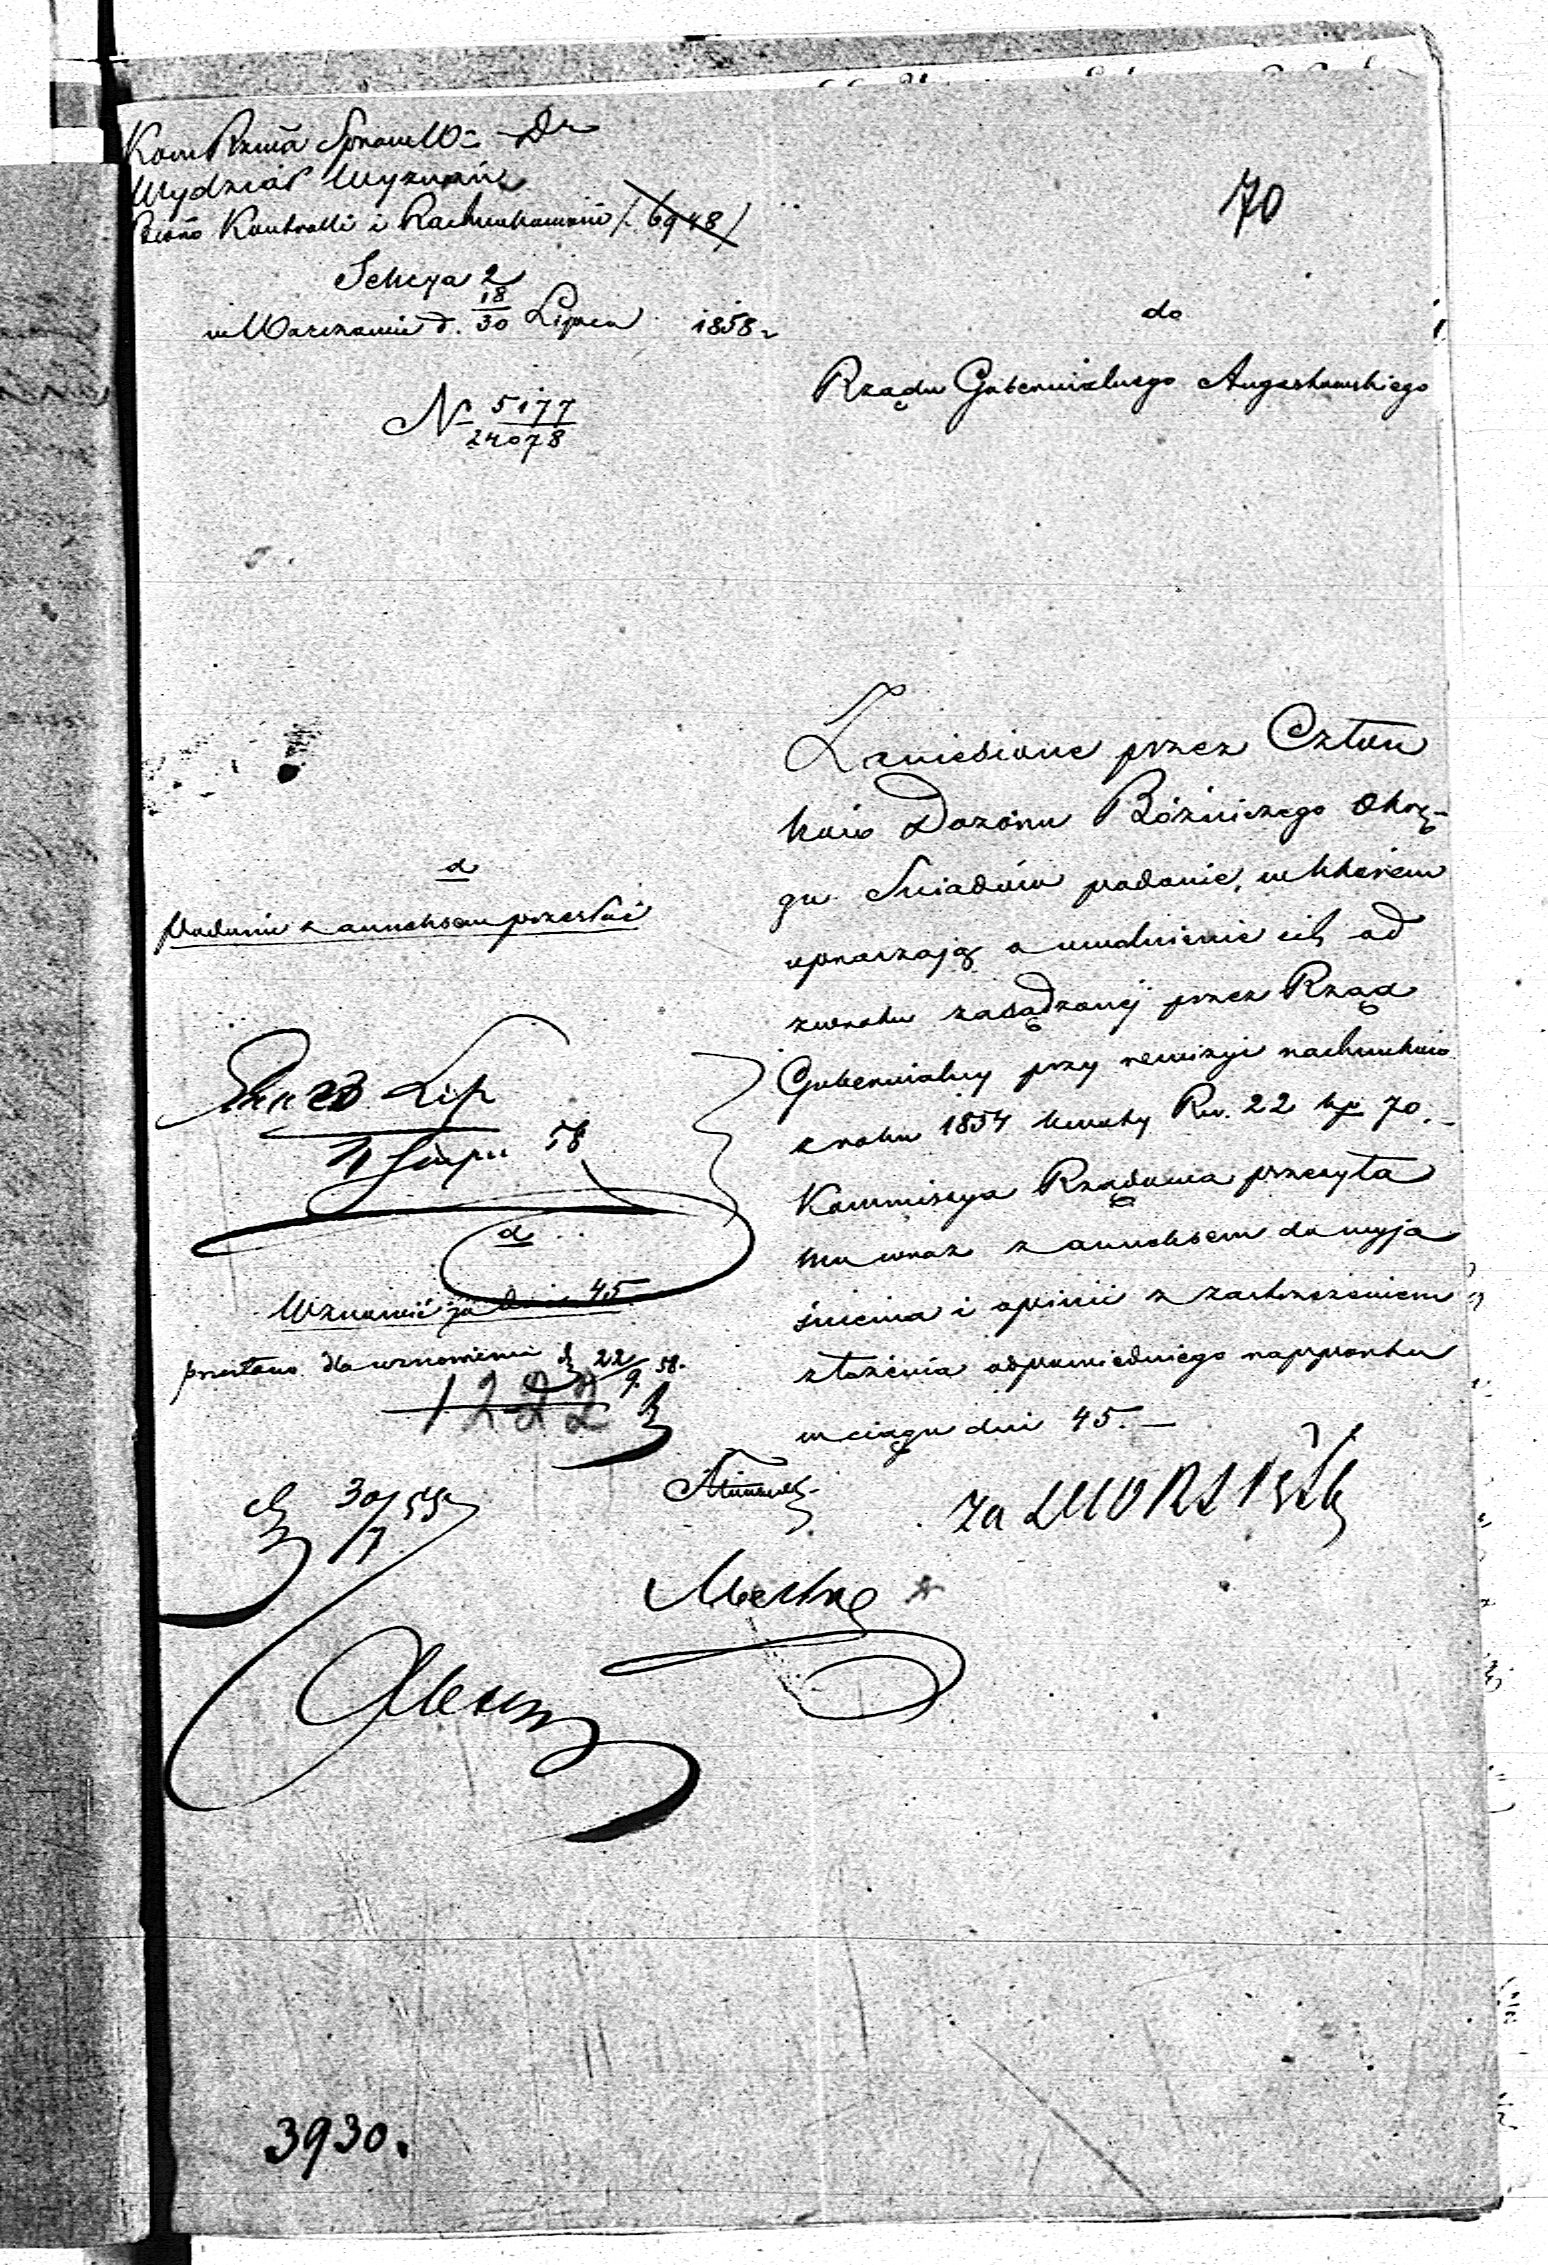 Kom Rząd Spraw W: D
Wydział Wyznań
Bióro Kontrolli i Rachunkowości /: 6948 /
70
Sekcya 2
w Warszawie d. 18/30 Lipca 1858 r
do
Rządu Gubernialnego Augustowskiego
N 5177/24078
Zaniesione przez Człon
ków Dozoru Bóżniczego Okrę-
gu Śniadów podanie, w którem
upraszają o uwolnienie ich od
zwrotu zasądzonej przez Rząd
Gubernialny przy rewizyi rachunków
z roku 1854 kwoty Rs. 22 kp 70.-
Kommissya Rządowa przesyła
mu wraz z annexem do wyja
śnienia i opinii z zastrzeżeniem
złożenia odpowiedniego rapportu
w ciągu dni 45.-
d
Podanie z annexem przesłać
23 Lip
58
d
Wznowić za dni 45
przesłano dla wznowienia 22/9 58.
1222
30/7 58
3930.